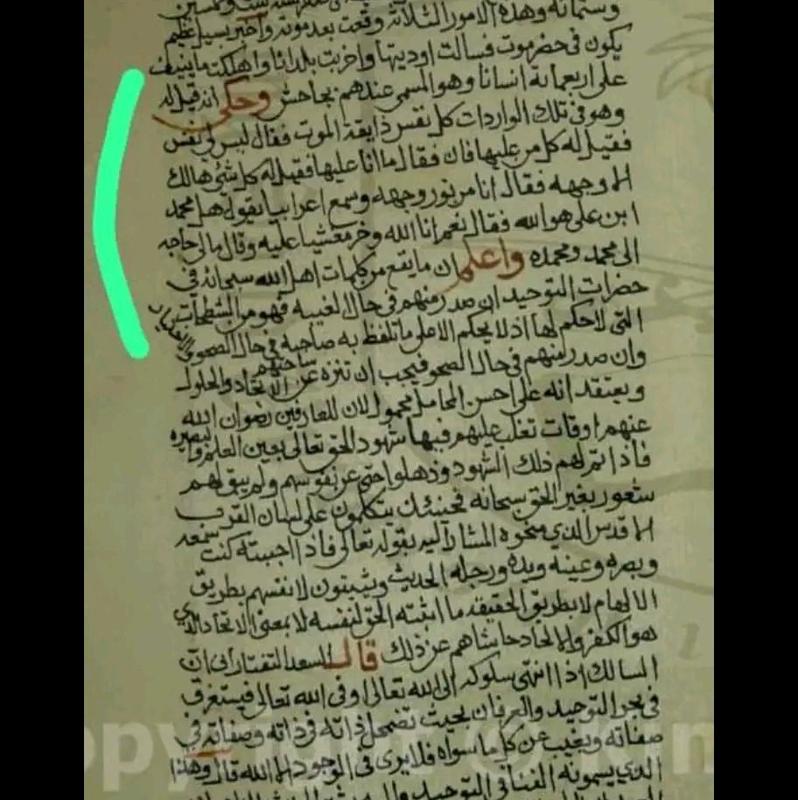 وستمائة وهذه الامور الثلاثة وقعت بعد موته واخبر بسيل عظيم
يكون في حضرموت فسالت اوديتها واخربت بلدانا واهلكت ما ينيف
على اربعماية انسانا وهو المسمى عندهم بجاحش وحكي انه قيل له
وهو في تلك الواردات كل نفس ذايقة الموت فقال ليس لي نفس
فقيل له كل من عليها فان فقال ما انا عليها فقيل له كل شئ هالك
الا وجهه فقال انا من نور وجهه وسمع اعرابيا يقول هل محمد
ابن علي هو الله فقال نعم انا الله وخر مغشيا عليه وقال مالي حاجه
الى محمد ومحمده واعلم ان ما يقع من كلمات اهل الله سبحانه في
حضرات التوحيد ان صدر منهم في حال الغيبه فهو من الشطحات
التي لا حكم لها اذ لا يحكم الا على ما تلفظ به صاحبه في حال الصحو
وان صدر منهم في حال الصحو فيجب ان تنزه ساحتهم عن الاتحاد والحلول
ويعتقد انه على احسن المحامل محمول لان للعارفين رضوان الله
عنهم اوقات تغلب عليهم فيها شهود الحق تعالى بعين العلم والبصيره
فاذا تم لهم ذلك الشهود وذهلوا حتى عن نفوسهم ولم يبق لهم
شعور بغير الحق سبحانه فحينئذ يتكلمون على لسان القرب
الاقدس الذي منحوه المشار اليه بقوله تعالى فاذا احببته كنت سمعه
وبصره وعينه ويده ورجله الحديث ويثبتون لانفسهم بطريق
الالهام لا بطريق الحقيقه ما اثبته الحق لنفسه لا بمعنى الاتحاد الذي
هو الكفر والالحاد حاشاهم عن ذلك قال السعد التفتازاني ان
السالك اذا انتهى سلوكه الى الله تعالى وفي الله تعالى فيستغرق
في بحر التوحيد والعرفان بحيث تضمحل ذاته في ذاته وصفاته في
صفاته ويغيب عن كل ما سواه فلا يرى في الوجود الا الله قال وهذا
الذي يسمونه الفنا في التوحيد